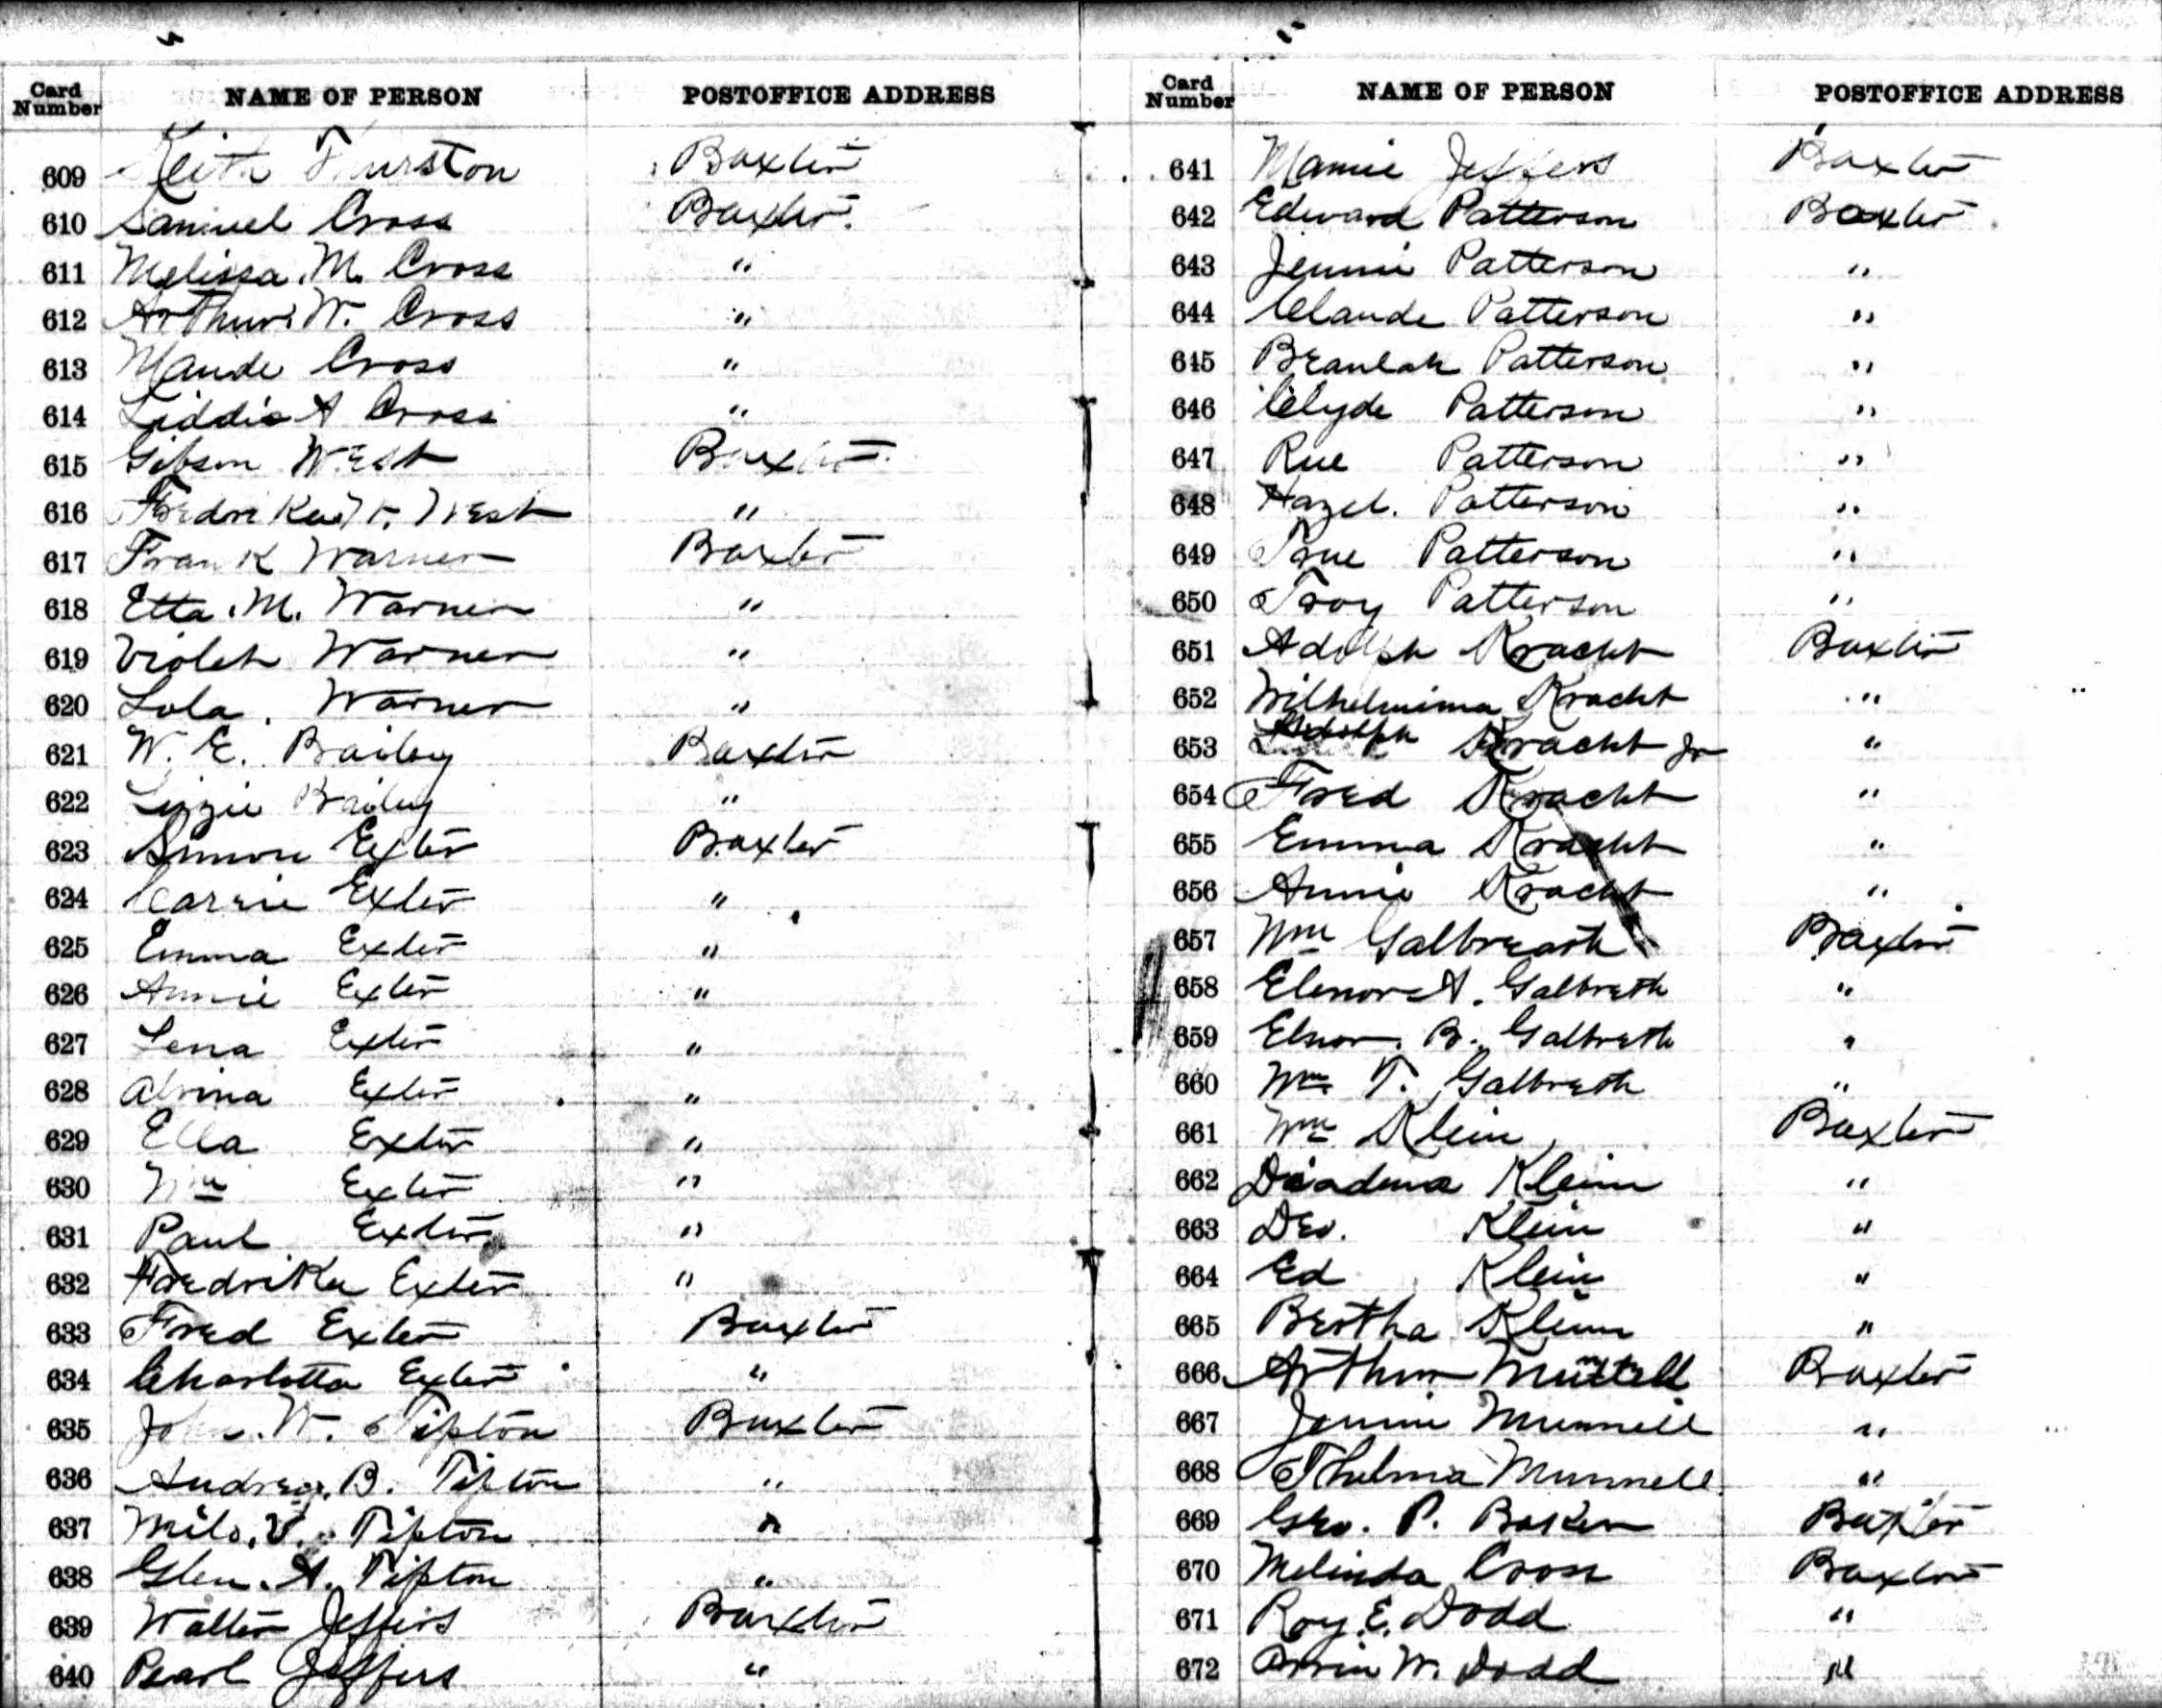 Card Number NAME OF PERSON POSTOFFICE ADDRESS
609 Keith Thurston Baxter
610 Samuel Cross Baxter
611 Melissa M. Cross "
612 Arthur W. Cross "
613 Maude Cross "
614 Liddie A Cross "
615 Gibson West Baxter
616 West "
617 Frank Warner Baxter
618 Etta M. Warner "
619 Violet Warner "
620 Lola Warner "
621 W. E. Bailey Baxter
622 Lizzie Bailey "
623 Simon Exter Baxter
624 Carrie Exter "
625 Emma Exter "
626 Annie Exter "
627 Lena Exter "
628 Alvina Exter "
629 Ella Exter "
630 Wm Exter "
631 Paul Exter "
632 Fredrika Exter "
633 Fred Exter Baxter
634 Charlotta Exter "
635 John W. Tipton Baxter
636 Audrey B. Tipton "
637 Milo V. Tipton "
638 Glen A. Tipton "
639 Walter Jeffers Baxter
640 Pearl Jeffers "
Card Number NAME OF PERSON POSTOFFICE ADDRESS
641 Mamie Jeffers Baxter
642 Edward Patterson Baxter
643 Jennie Patterson "
644 Claude Patterson "
645 Beaulah Patterson "
646 Clyde Patterson "
647 Rue Patterson "
648 Hazel Patterson "
649 True Patterson "
650 Troy Patterson "
651 Adolph Kracht Baxter
652 Wilhelmima Kracht "
653 Adolph Kracht Jr "
654 Fred Kracht "
655 Emma Kracht "
656 Annie Kracht "
657 Wm Galbreath Baxter
658 Elenor A. Galbreth "
659 Elnor B. Galbreth "
660 Wm T. Galbreth "
661 Wm Klein Baxter
662 Diadema Klein "
663 Geo. Klein "
664 Ed Klein "
665 Bertha Klein "
666 Arthur Munnell Baxter
667 Jennie Munnell "
668 Thelma Munnell "
669 Geo. P. Baker Baxter
670 Melinda Cross Baxter
671 Roy E. Dodd "
672 Orvin W. Dodd "